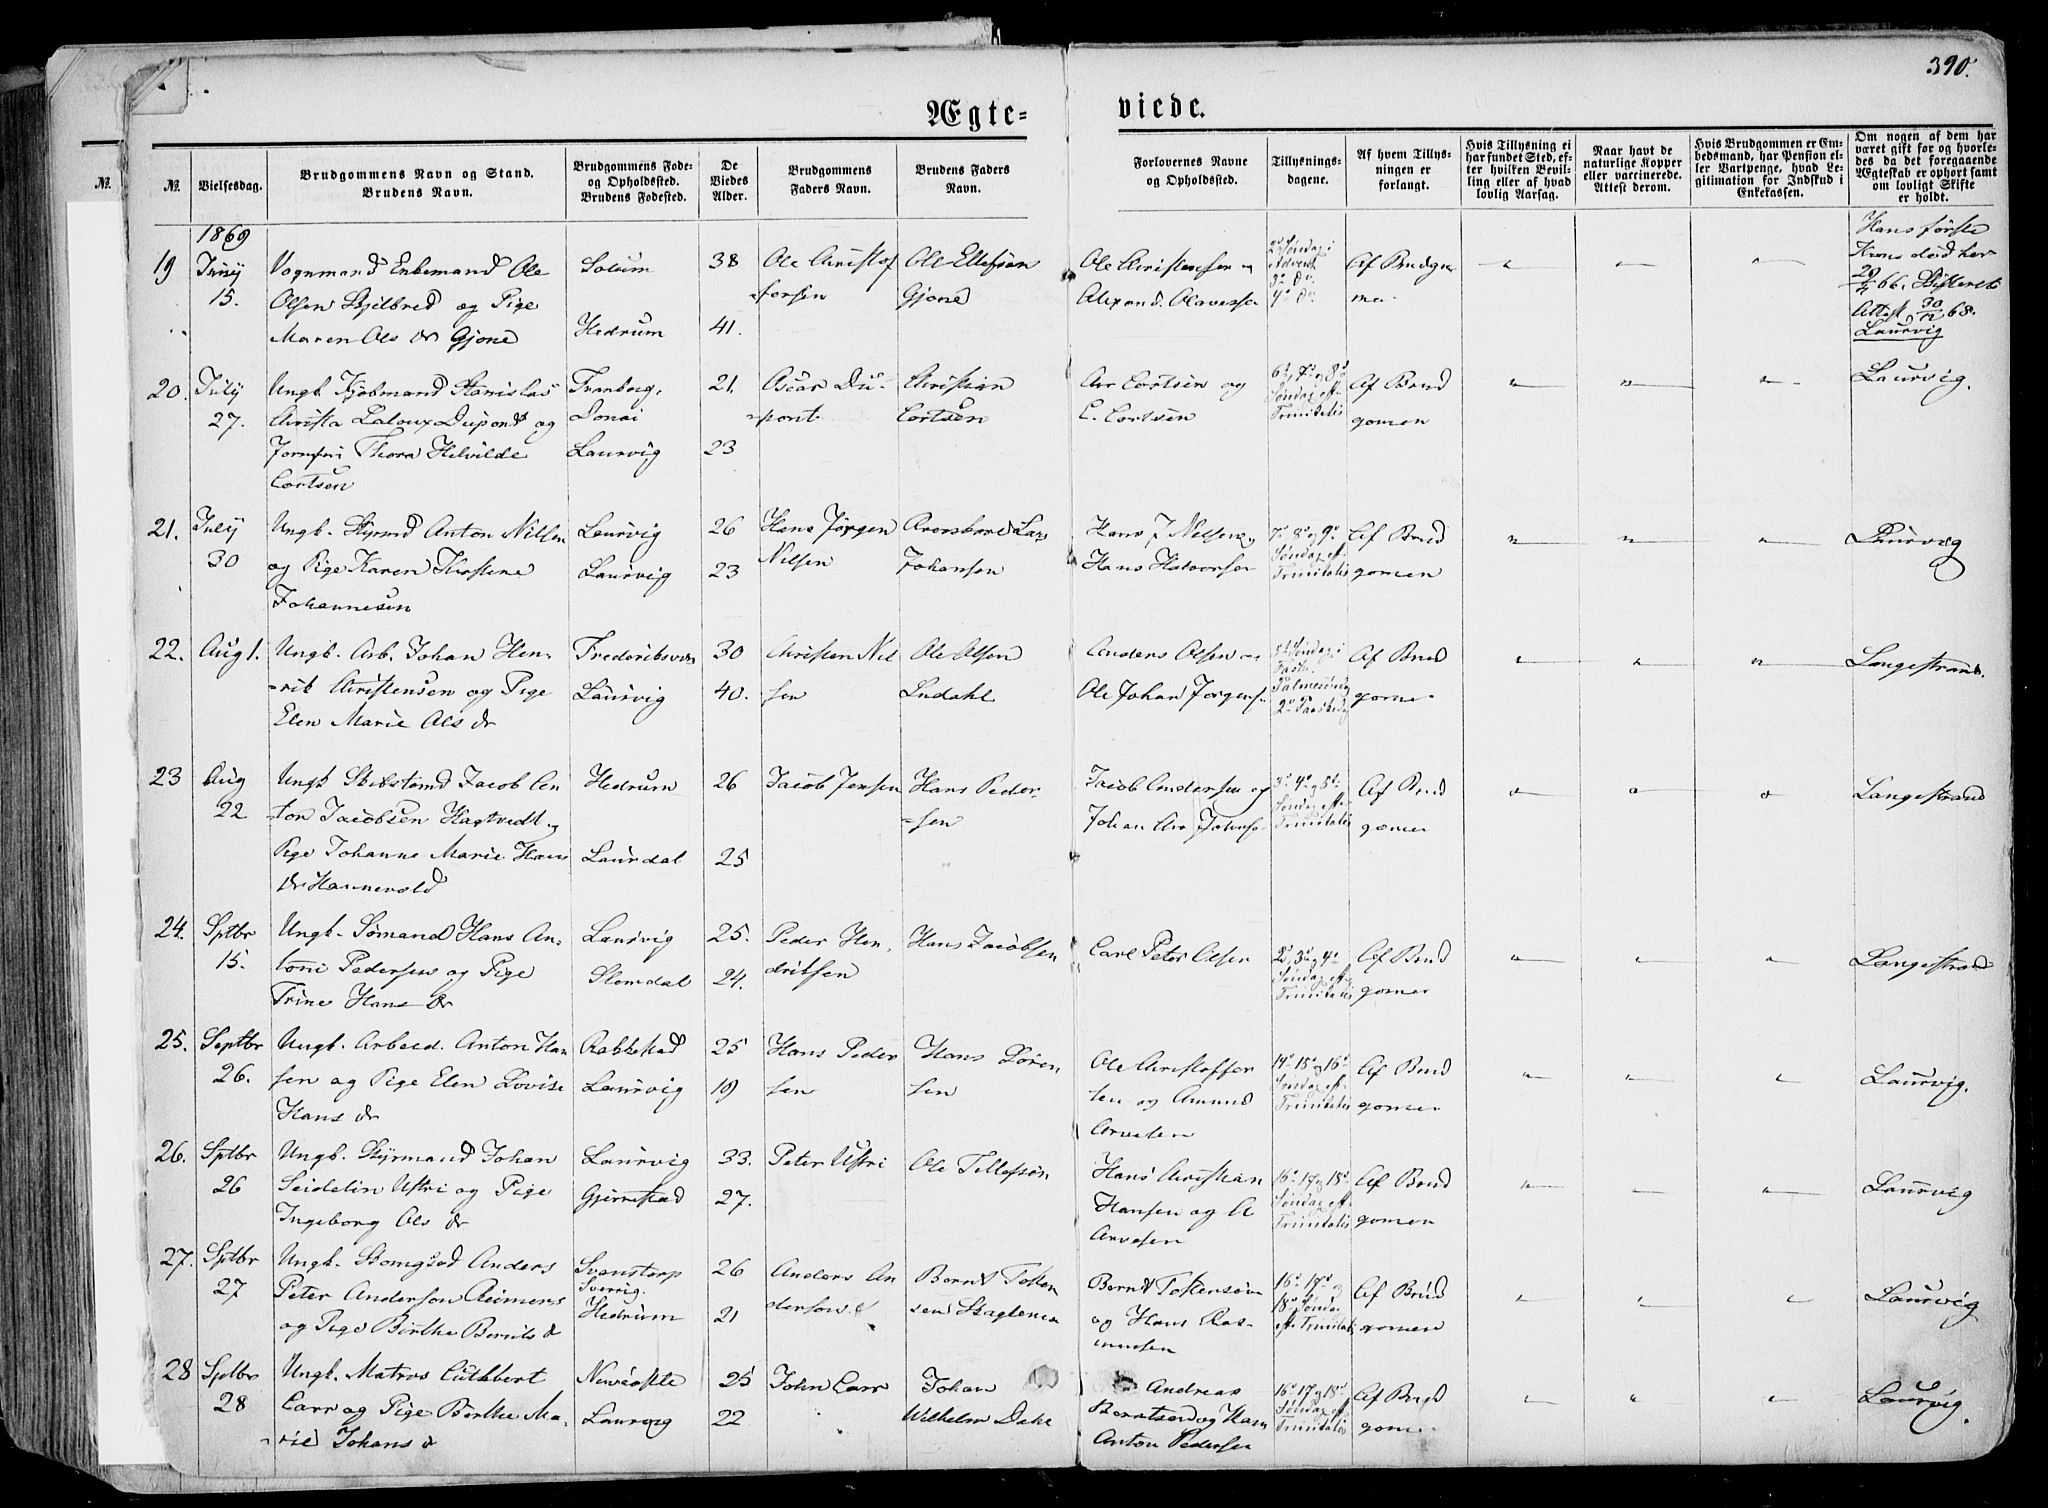 390.
Ægte-
viede.
№.
№.
Vielsesdag.
Brudgommens Navn og Stand.
Brudens Navn.
Brudgommens Føde-
og Opholdssted.
Brudens Fødested.
De
Viedes
Alder.
Brudgommens
Faders Navn.
Brudens Faders
Navn.
Forlovernes Navne
og Opholdssted.
Tillysnings-
dagene.
Af hvem Tillys-
ningen er
forlangt.
Hvis Tillysning ei
har fundet Sted, ef-
ter hvilken Bevil-
ling eller af hvad
lovlig Aarsag.
Naar havt de
naturlige Kopper
eller vaccinerede.
Attest derom.
Hvis Brudgommen er Em-
bedsmand, har Pension el-
ler Vartpenge, hvad Le-
gitimation for Indskud i
Enkekassen.
Om nogen af dem har
været gift før og hvorle-
des da det foregaaende
Ægteskab er ophørt samt
om lovligt Skifte
er holdt.
1869
19
15.
Vognmand Enkemand Ole
Olsen Kjilbred og Pige
Maren Ols dr Gjone
Solum
Hedrum
38
41.
Ole Christof
fersen
Ole Ellefsen
Gjone
Ole Christensen og
2d Søndag i
Advent
3d do.
4d do
Af Brudgom
men
Hans første
Kone død her
29/4 66. Skifteret
Attest 30/12 68.
Laurvig
20.
July
27.
Ungk. Kjøbmand Stanislas
Christa Laloux Dupont og
Jomfru Thora Helvilde
Cortsen
Laurvig
21.
23
Oscar Du-
pont
Christian
Cortsen
Chr Cortsen og
C. Cortsen
6d, 7d og 8d
Søndag eft.
Trinitatis
Af Brud
gomen
Laurvig.
21.
July
30
Ungk. Styrmd Anton Nilsen
og Pige Karen Kirstine
Johannesen
Laurvig
Laurvig
26
23
Hans Jørgen
Nilsen
Johansen
Hans J Nilsen og
Hans Halvorsen
7d 8d og 9d
Søndag eft.
Trinitatis
Af Brud
gomen
Laurvig
22.
Aug 1.
Ungk. Arb. Johan Hen-
rik Christensen og Pige
Elen Marie Ols dr
Frederiksværn
Laurvig
30
40.
Christen Nil
sen
Ole Olsen
Lndahl
Anders Olsen og
Ole Johan Jørgens.
Palmesøndag
2d Paaskedag
Af Brud
gomen
Langestrand.
23
Aug
22
Ungk Skibstømd Jacob An
ton Jacobsen Hagtvedt og
Pige Johanne Marie Hans
dr Hannevold
Hedrum
Laurdal
26
25
Jacob Jensen
Hans Peder
sen
Jacob Andersen og
Johan Chr Johnsen
3d 4d og 5d
Søndag efter
Trinitatis
Af Brud
gomen
Langestrand
24.
Sptbr
15.
Ungk. Sømand Hans An-
toni Pedersen og Pige
Trine Hans dr
Laurvig
Slemdal
25.
24.
Peder Hen
driksen
Hans Jacobsen
Carl Peter Olsen
2d, 3d og 4d
Søndag eft
Trinitatis
Af Brud
gomen
Langestrand
25.
Septbr
26.
Ungk. Arbeid. Anton Han
sen og Pige Elen Lovise
Hans dr
Rakkestad
Laurvig
25
19
Hans Peder
sen
Hans Loren
sen
Ole Christoffer
sen og Amund
Arvesen
14d 15d og 16d
Søndag eft.
Trinitatis
Af Brud
gomen
Laurvig.
26.
Sptbr
26
Ungk. Styrmand Johan
Seidelin Ustri og Pige
Ingeborg Ols dr
Laurvig
Gjerrestad
33.
27.
Peter Ustri
Ole Tellefsen
Hans Christian
Hansen og A
Arvesen
16d 17 og 18d
Søndag eft.
Trinitatis
Af Brud
gomen
Laurvig
27.
Sptbr
27
Anders
Peter Anderson Reimers
og Pige Birthe Bernts dr
Svenstorp
Sverrig.
Hedrum
26
21
Anders An
dersons
Bernt Tosten
sen
Bernt Tostensen
og Hans Ras-
mussen
16d 17d og
18d Søndag
eft. Trinitatis
Af Brud
gomen
Laurvig
28
Sptbr
28
Ungk. Matros Cuthbert
Carr og Pige Birthe Ma-
rie Johans dr
Newcastle
Laurvig
25
22
John Carr
Johan
Wilhelm Dahl
Andreas
Berntsen og Hans
Anton Pedersen
16d 17 og 18d
Søndag eft.
Trinitatis
Af Brud
gomen
Laurvig.